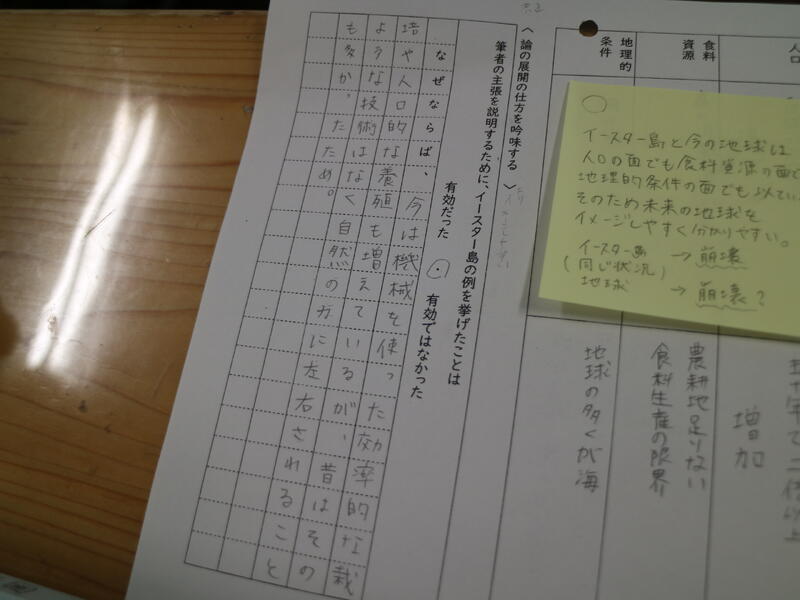 人口
増加
食料
資源
農耕地足りない
食料生産の限界
地理的
条件
地球の多くが海
イースター島と今の地球は
人口の面でも食料資源の面で
地理的条件の面でも似てい
そのため未来の地球を
イメージしやすく分かりやすい。
イースター島 → 崩壊
(同じ状況)
地球 → 崩壊?
〈論の展開の仕方を吟味する〉
筆者の主張を説明するために、イースター島の例を挙げたことは
有効だった ・ 有効ではなかった
なぜならば、今は機械を使った効率的な栽
培や人口的な養殖も増えているが、昔はその
ような技術はなく自然の力に左右されること
も多かったため。